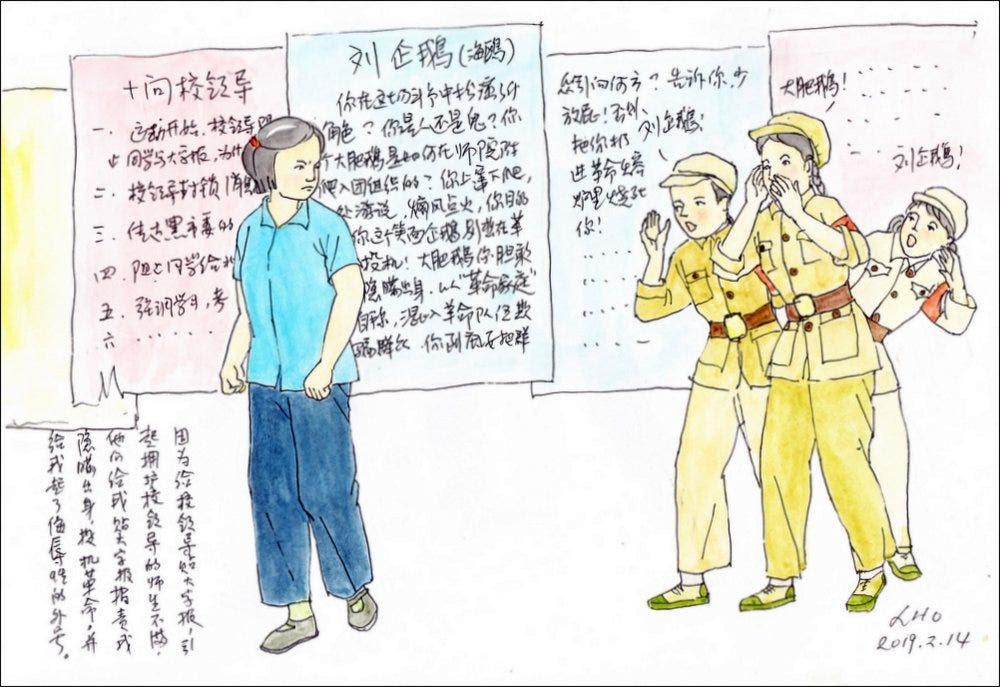 十问校领导
一、运动开始，校领导阻
止同学写大字报，为什
二、校领导封锁消息
三、传达黑市委的
四、阻止同学给
五、强调学习，考
六
刘企鹅（海鸥）
你在这场斗争中扮演
角色？你是人还是鬼？你
个大肥鹅是如何在师院附
爬入团组织的？你上窜下爬，
处游说，煽风点火，你目的
你这个笑面企鹅别想在革
投机！大肥鹅你胆敢
隐瞒出身，以“革命家庭”
自称，混入革命队伍欺
骗群众，你到底要把群
众引向何方？告诉你，少
放屁！否则，
把你扔
进革命熔
炉里烧死
你！
刘企鹅！
大肥鹅！
刘企鹅！
因为给校领导贴大字报，引
起拥护校领导的师生不满，
他们给我贴大字报指责我
隐瞒出身，投机革命，并
给我起了侮辱性的外号。
LHO
2019.2.14